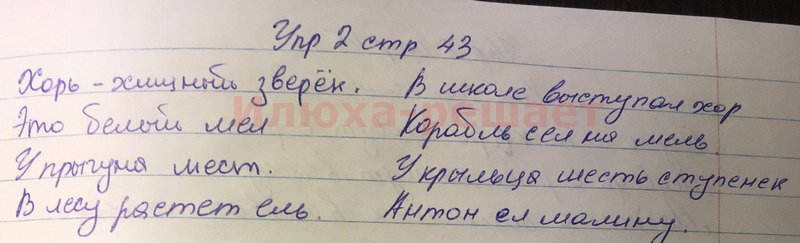 Упр 2 стр 43
Хорь - хищный зверёк. В школе выступал хор
Это белый мел Корабль сел на мель
У прыгуна шест. У крыльца шесть ступенек
В лесу растет ель. Антон ел малину.
Илюха-решает